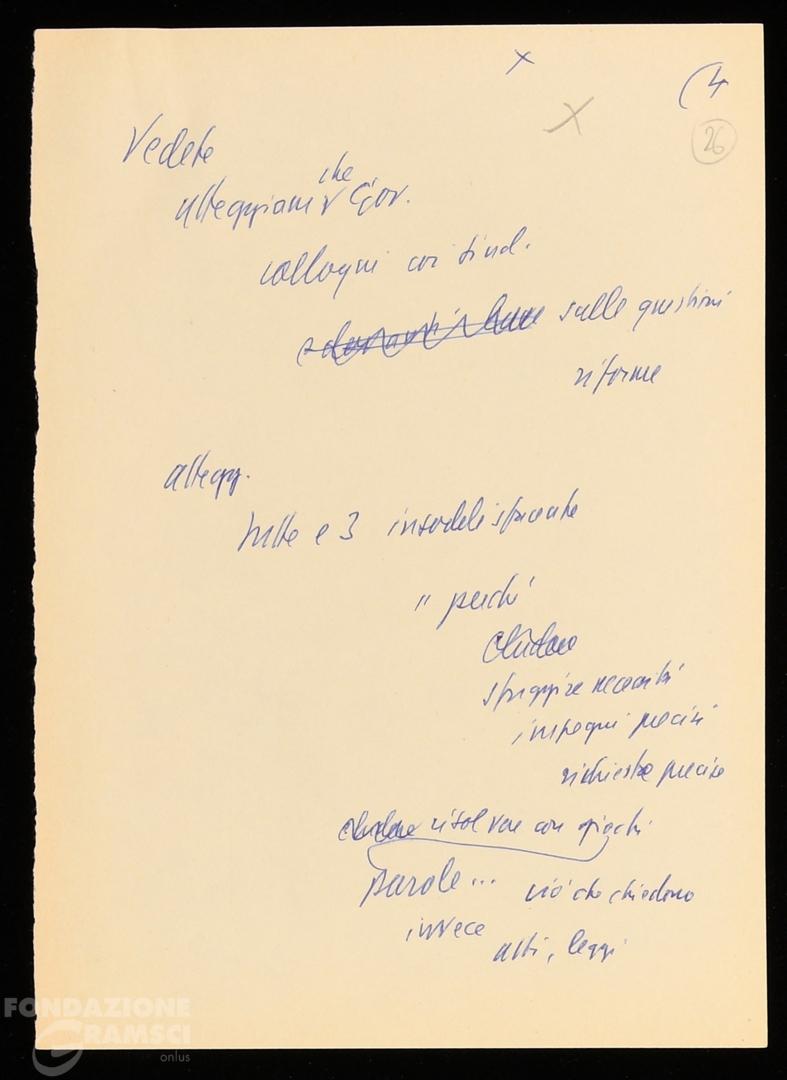 x
(4
x
26
Vedete
che
atteggiam Gov.
colloqui coi sind.
sulle questioni
riforme
attegg.
tutte e 3 insodelisfacente
" perché
eludere
sfuggire necessità
impegni precisi
richieste precise
eludere risolvere con giochi
parole... ciò che chiedono
invece
atti, leggi
FONDAZIONE
GRAMSCI
onlus